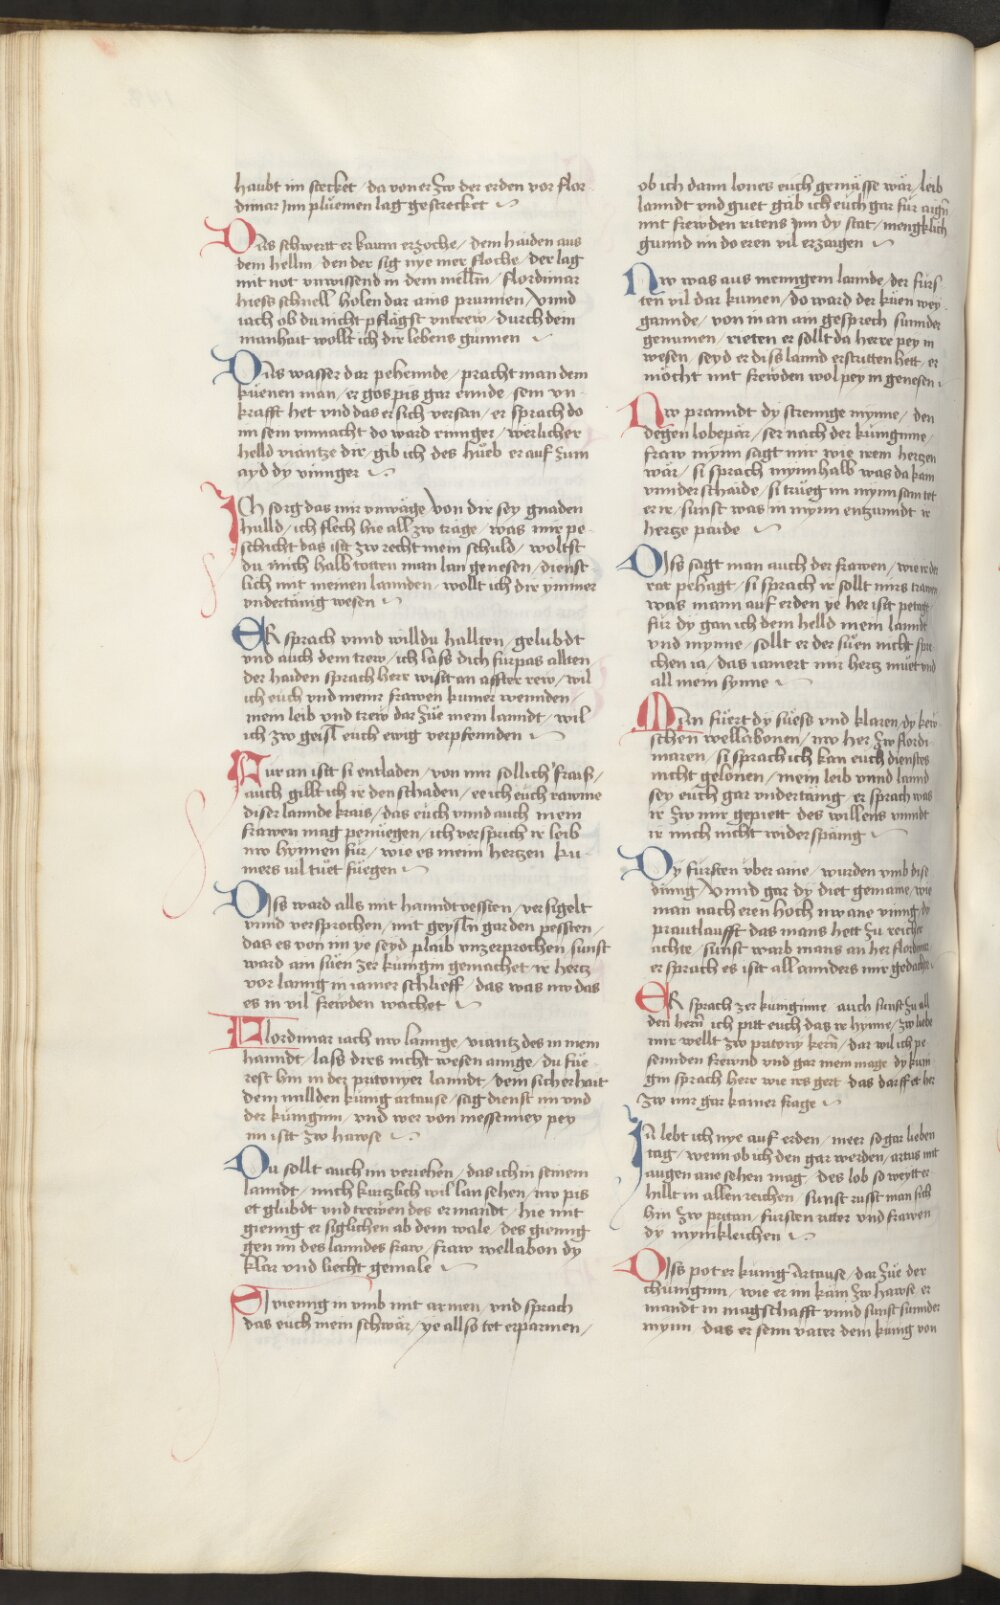 haubt im stecket / da von er zw der erden vor flor
dimar jnn pluemen lag gestrecket
Das schwertt er kaum erzoche / dem haiden aus
dem hellm / den der sig nye mer floche / der lag
mit not vnwissend in dem mellm / flordimar
hiess schnell holen dar ains prunnen / vnnd
iach ob du nicht pflägst vntrew / durch dein
manhait wollt ich dir lebens gunnen
Das wasser dar pehennde / pracht man dem
küenen man / er gos pis gar ennde / sein vn
krafft het vnd das er sich versan / er sprach do
im sein vnmacht do ward ringer / werlicher
helld viantze dir / gib ich des hueb er auf zum
ayd dy vinnger
Ich sorg das mir vnwäge / von dir sey gnaden
hulld / ich flech hie all zw träge / was mir pe
schicht das istt zw recht mein schuld / woltst
du mich halb totten man lan genesen / dienst
lich mit meinen lannden / wollt ich dir ymmer
vndertänig wesen
Er sprach vnnd willdu hallten / gelubdt
vnd auch dein trew / ich lass dich fürpas allten
der haiden sprach herr wisst an affter rew / wil
ich euch vnd meinr frawen kumer wennden /
mein leib vnd trew dar züe mein lanndt / wil
ich zw geisl euch ewig verpfennden
Für an istt si entladen / von mir sollich frais /
auch gillt ich ir den schaden / ee ich euch rawme
diser lannde krais / das euch vnnd auch mein
frawen mag penüegen / ich versprich ir leib
nw hynnen für / wie es meim hertzen ku
mers vil tüet füegen
Diss ward alls mit hanndtvessten / versigelt
vnnd versprochen / mit geysln gar den pessten /
das es von im ye seyd plaib vnzerprochen / sunst
ward ain süen zer kunigin gemachet / ir hertz
vor lanng in iamer schlieff / das was nw das
es in vil frewden wachet
Flordimar iach nw lannge / viantz des in mein
hanndt / lass dies nicht wesen annge / du füe
rest hin in der pritonyer lanndt / dein sicherhait
dem millden kunig artause / sag dienst im vnd
der kunginn / vnd wer von messeniey pey
im istt zw hawse
Du sollt auch im veriehen / das ich in seinem
lanndt / mich kurtzlich wil lan sehen / nw pis
et glubdt vnd trewen des ermandt / hie mit
gienng er siglichen ab dem wale / des gienng
gen im des lanndes fraw / fraw wellabon dy
klar vnd liecht gemale
Si vienng in vmb mit armen / vnd sprach
das euch mein schwär / ye allso tet erparmen /
ob ich dann lones euch gemässe wär / leib
lanndt vnd guet gäb ich euch gar für aign
mit frewden ritens jnn dy stat / mengklich
gunnd im do eren vil erzaigen
Nw was aus menngem lannde / der fürs
ten vil dar kumen / do ward der küen wey
gannde / von in an ain gesprech sunnder
genumen / rieten er sollt da herre pey in
wesen / seyd er diss lannd erstritten hett / er
möcht mit frewden wol pey in genesen
Nw pranndt dy strennge mynne / den
degen lobepär / ser nach der kuniginne /
fraw mynn sagt mir wie irem hertzen
wär / si sprach mynnhalb was da kain
vnnderschaide / si trüeg im mynn sam tet
er ir / sunst was in mynn entzunndt ir
hertze paide
Diss sagt man auch der frawen / wie ir der
rat pehagt / si sprach ir sollt mirs trawen
was mann auf erden ye her istt petagt
für dy gan ich dem helld mein lanndt
vnd mynne / sollt er der süen nicht spre
chen ia / das iamert mir hertz muet vnd
all mein synne
Man füert dy süess vnd klaren / dy kew
schen wellabonen / nw her zw flordi
maren / si sprach ich kan euch dienstes
nicht gelonen / mein leib vnnd lannd
sey euch gar vndertänig / er sprach was
ir zw mir gepiett des willens vinndt
ir mich nicht widerspänig
Dy fürsten vber aine / wurden vmb dise
dinng / vnnd gar dy diet gemaine / wie
man nach eren hoch nw ane vinng / dy
prautlaufft das mans hett zu reicher
achte / sunst warb mans an her flordimar
er sprach es istt all annders mir gedachte
Er sprach zer kuniginne / auch sunst zu all
den herrn / ich pitt euch das ir hynne / zw liebe
mir wellt zw pritony kern / dar wil ich pe
sennden frewnd vnd gar mein mage / dy kuni
gin sprach herr wie irs gert / das darff et her
zw mir gar kainer frage
Ja lebt ich nye auf erden / meer so gar lieben
tag / wenn ob ich den gar werden / artus mit
augen ane sehen mag / des lob so weytt er
hillt in allen reichen / sunst rafft man sich
hin zw pritan / fursten ritter vnd frawen
dy mynikleichen
Diss pot er kunig Artause / dar züe der
chuniginn / wie er im käm zw hawse / er
mandt in magschafft vnnd sunst sunnder
mynn / das er seim vater dem kunig von